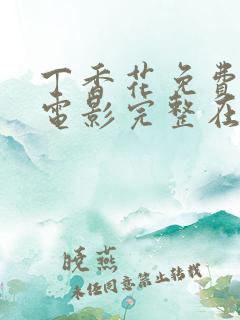 丁香花免費
電影完整在
曉燕
未经同意禁止转载